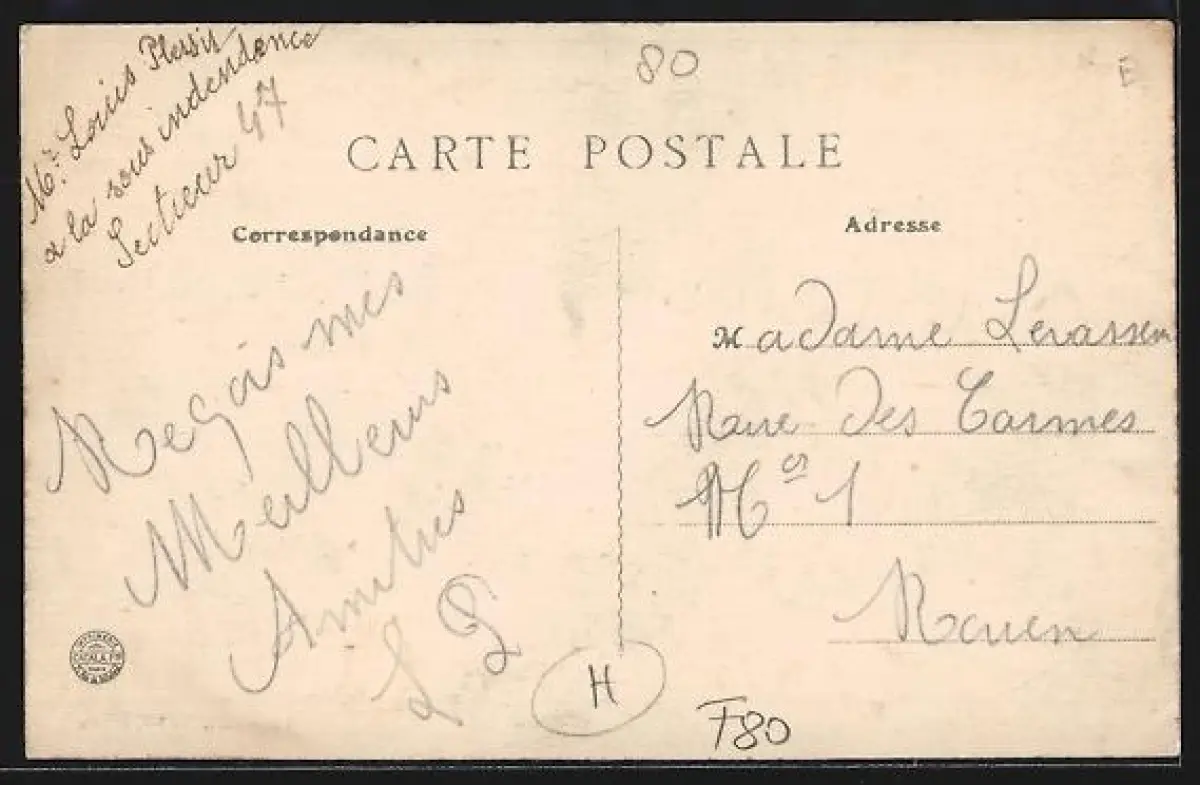 80
E
Mr. Louis Plessis
a la sous indendance
Secteur 47
CARTE POSTALE
Correspondance
Adresse
Reçois mes
Meilleurs
Amities
L P
Madame Levasseur
Rue des Carmes
No 1
Rouen
H
F80